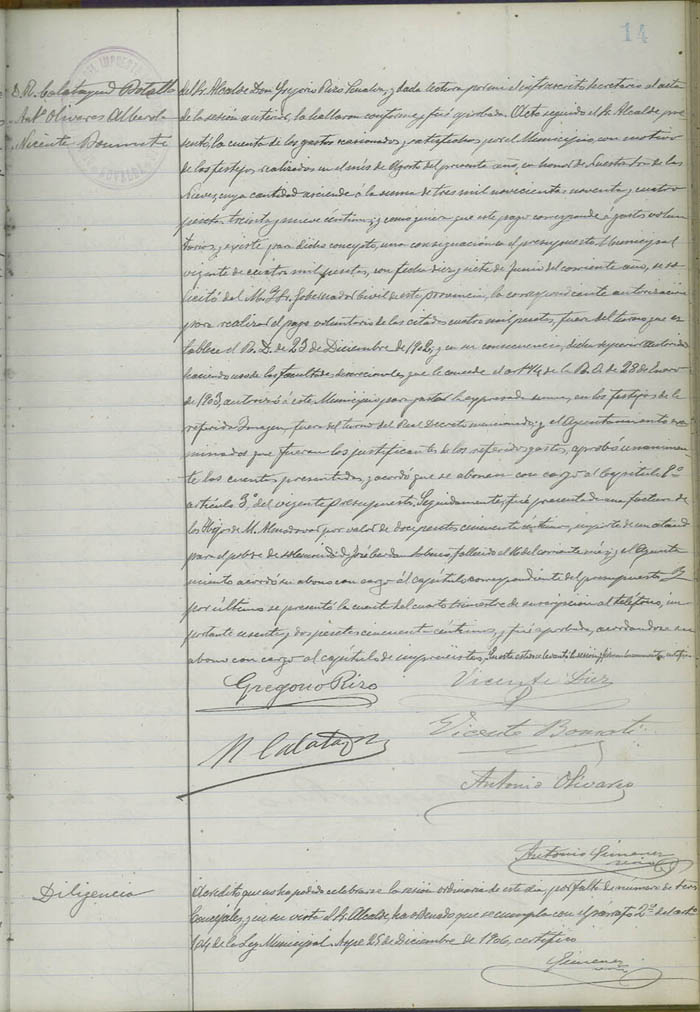 14
D. R. Calatayud Botella
Antº Olivares Alberola
Vicente Bonmati
del Sr. Alcalde Don Gregorio Rizo, y dada lectura por mí el infrascrito Secretario al acta
de la sesión anterior, la hallaron conforme y fué aprobada. Acto seguido el Sr. Alcalde pre
sentó, la cuenta de los gastos ocasionados y satisfechos por el Municipio, con motivo
de los festejos realizados en el mes de Agosto del presente año, en honor de Nuestra Sra de las
Nieves, cuya cantidad asciende á la suma de tres mil novecientas noventa y cuatro
pesetas treinta y nueve céntimos; y como quiera que este pago corresponde á gastos volun
tarios, y existe para dicho concepto, una consignación en el presupuesto Municipal
vigente de cuatro mil pesetas, con fecha diez y siete de Junio del corriente año, se so
licitó del M. I. Sr. Gobernador Civil de esta provincia, la correspondiente autorización
para realizar el pago voluntario de las citadas cuatro mil pesetas, fuera del turno que es
tablece el R. D. de 23 de Diciembre de 1902, y en su consecuencia, dicha superior autoridad
haciendo uso de las facultades discrecionales que le concede el artº 4 de la R. O. de 28 de Enero
de 1903, autorizó á este Municipio para gastar la expresada suma, en los festejos de la
referida Imagen, fuera del turno del Real Decreto mencionado; y el Ayuntamiento exa
minados que fueron los justificantes de los referidos gastos, aprobó unánimemen
te las cuentas presentadas, y acordó que se abonen con cargo al Capítulo 9º
artículo 3º del vigente presupuesto. Seguidamente, fué presentada una factura de
los Hijos de M. Almodovar por valor de doce pesetas cincuenta céntimos, importe de un ataud
para el pobre de solemnidad José Cerdan fallecido el 16 del corriente mes; y el Ayunta
miento acordó su abono con cargo al capítulo correspondiente del presupuesto. Y
por último se presentó la cuenta del cuarto trimestre de suscripción al teléfono, im
portante sesenta y dos pesetas cincuenta céntimos, y fué aprobada, acordandose su
abono con cargo al capítulo de imprevistos. En este estado se levantó la sesión, y firman
Gregorio Rizo
Vicente Diez
R Calatayud
Vicente Bonmati
Antonio Olivares
Antonio Gimenez
Diligencia
Acredito que no ha podido celebrarse la sesión ordinaria de este día por falta de número de Sres
Concejales, y en su vista el Sr. Alcalde, ha ordenado que se cumpla con el párrafo 2º del artº
104 de la Ley Municipal. Aspe 25 de Diciembre de 1906, certifico
Gimenez